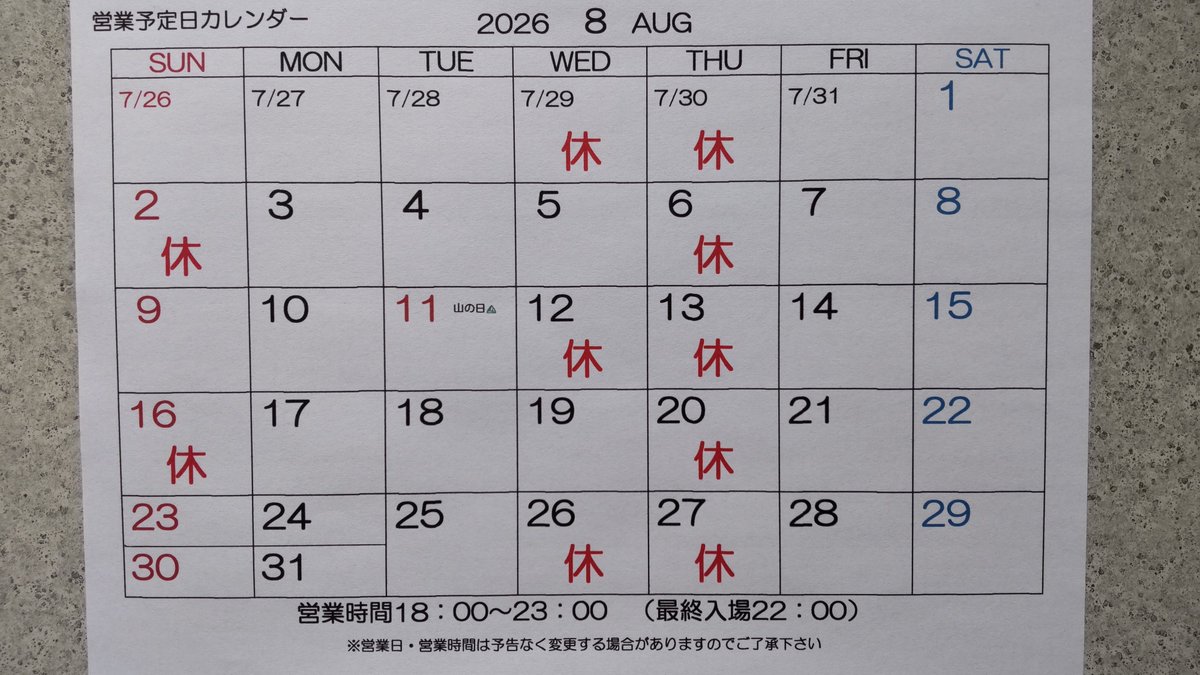 営業予定日カレンダー 2026 8 AUG
SUN MON TUE WED THU FRI SAT
7/26 7/27 7/28 7/29 7/30 7/31 1
休 休
2 3 4 5 6 7 8
休 休
9 10 11 山の日 12 13 14 15
休 休
16 17 18 19 20 21 22
休 休
23 24 25 26 27 28 29
休 休
30 31
営業時間18:00〜23:00 (最終入場22:00)
※営業日・営業時間は予告なく変更する場合がありますのでご了承下さい